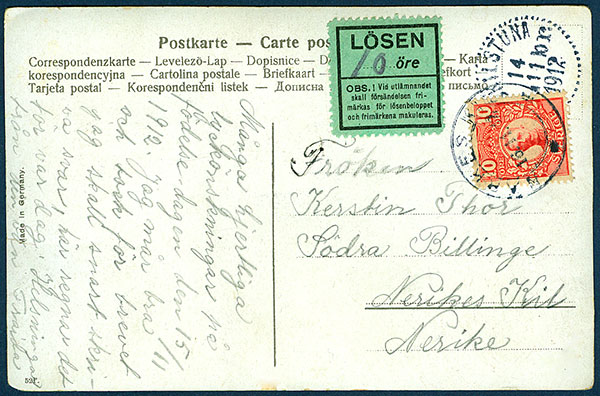 Postkarte — Carte pos
Correspondenzkarte — Levelező-Lap — Dopisnice — Karta
korespondencyjna — Cartolina postale — Briefkaart
Tarjeta postal — Korespondenční lístek — Дописна письмо
LÖSEN
10 öre
OBS.! Vid utlämnandet
skall försändelsen fri-
märkas för lösenbeloppet
och frimärkena makuleras.
TUNA
14
11
1912
10
10
SVERIGE
Många hjertliga
lyckönskningar på
födelsedagen den 15/11
1912 Jag mår bra
och tack för brevet
jag skall snart skri-
va svar, här regnar det
för var dag. Helsningar
från
Fröken
Kerstin Thor
Södra Billinge
Nerikes Kil
Nerike
Made in Germany.